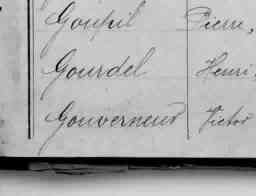 Goupil Pierre,
Gourdel Henri,
Gouverneur Victor